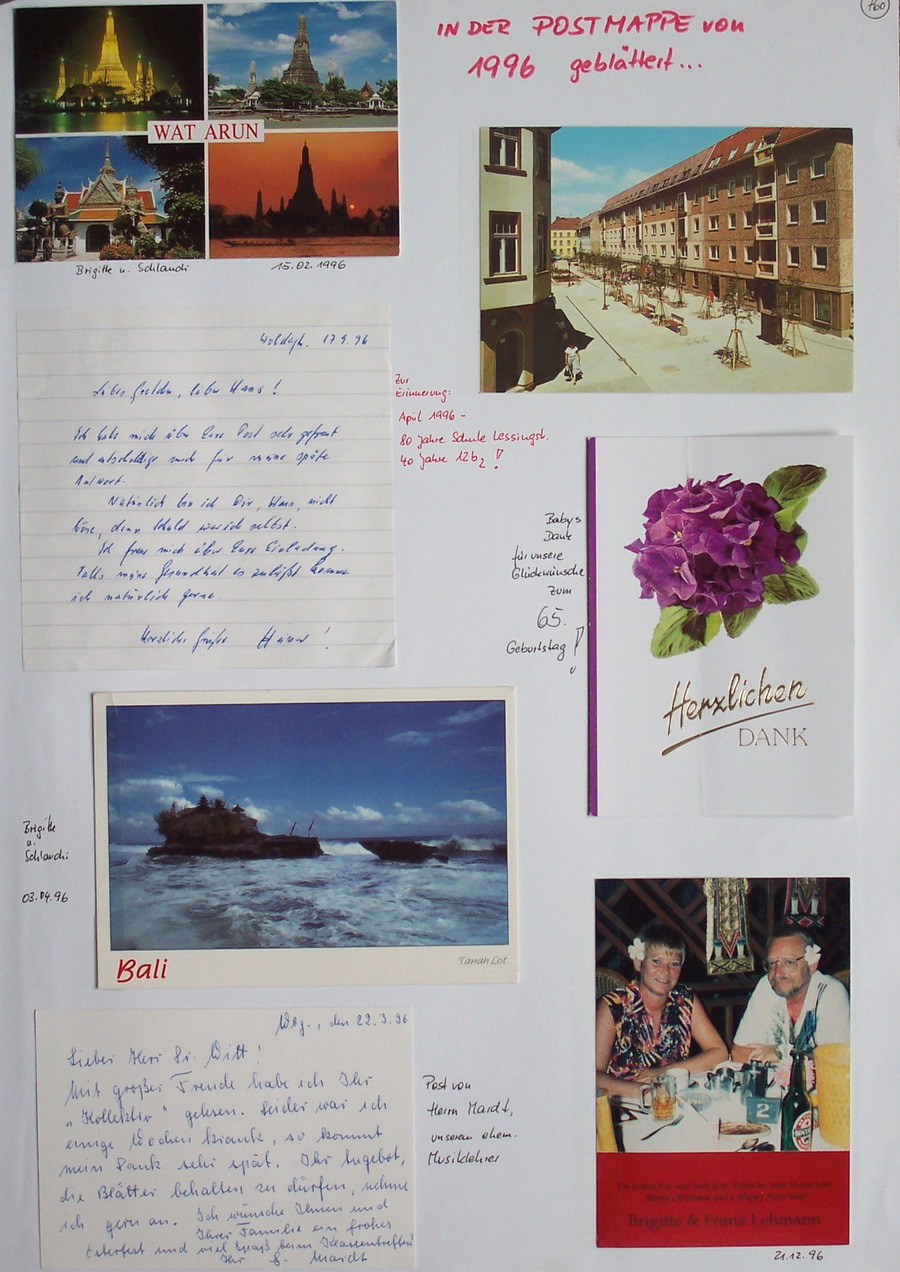 760
IN DER POSTMAPPE von
1996 geblättert...
WAT ARUN
Brigitte u. Schlandi 15.02.1996
17.4.96
Liebes Gretchen, lieber Hans!
Ich habe mich über Eure Post sehr gefreut
und entschuldige mich für meine späte
Antwort.
Natürlich bin ich Dir, Hans, nicht
böse, denn Schuld war ich selbst.
Ich freue mich über Eure Einladung.
Falls meine Gesundheit es zuläßt komme
ich natürlich gerne.
Herzliche Grüße
Zur
Erinnerung:
April 1996 -
80 Jahre Schule Lessingstr.
40 Jahre 12b2!
Babys
Dank
für unsere
Glückwünsche
zum
65.
Geburtstag!
Herzlichen
DANK
Brigitte
u.
Schlandi
03.04.96
Bali
Tanah Lot
Wbg., den 22.3.96
Lieber Herr Dr. Witt!
Mit großer Freude habe ich Ihr
"Kollektiv" gelesen. Leider war ich
einige Wochen krank, so kommt
mein Dank sehr spät. Ihr Angebot,
die Blätter behalten zu dürfen, nehme
ich gern an. Ich wünsche Ihnen und
Ihrer Familie ein frohes
Osterfest und viel Spaß beim Klassentreffen!
Ihr G. Mardt
Post von
Herrn Mardt,
unserem ehem.
Musiklehrer
2
Merry Christmas and a Happy New Year
Brigitte & Franz Lehmann
21.12.96